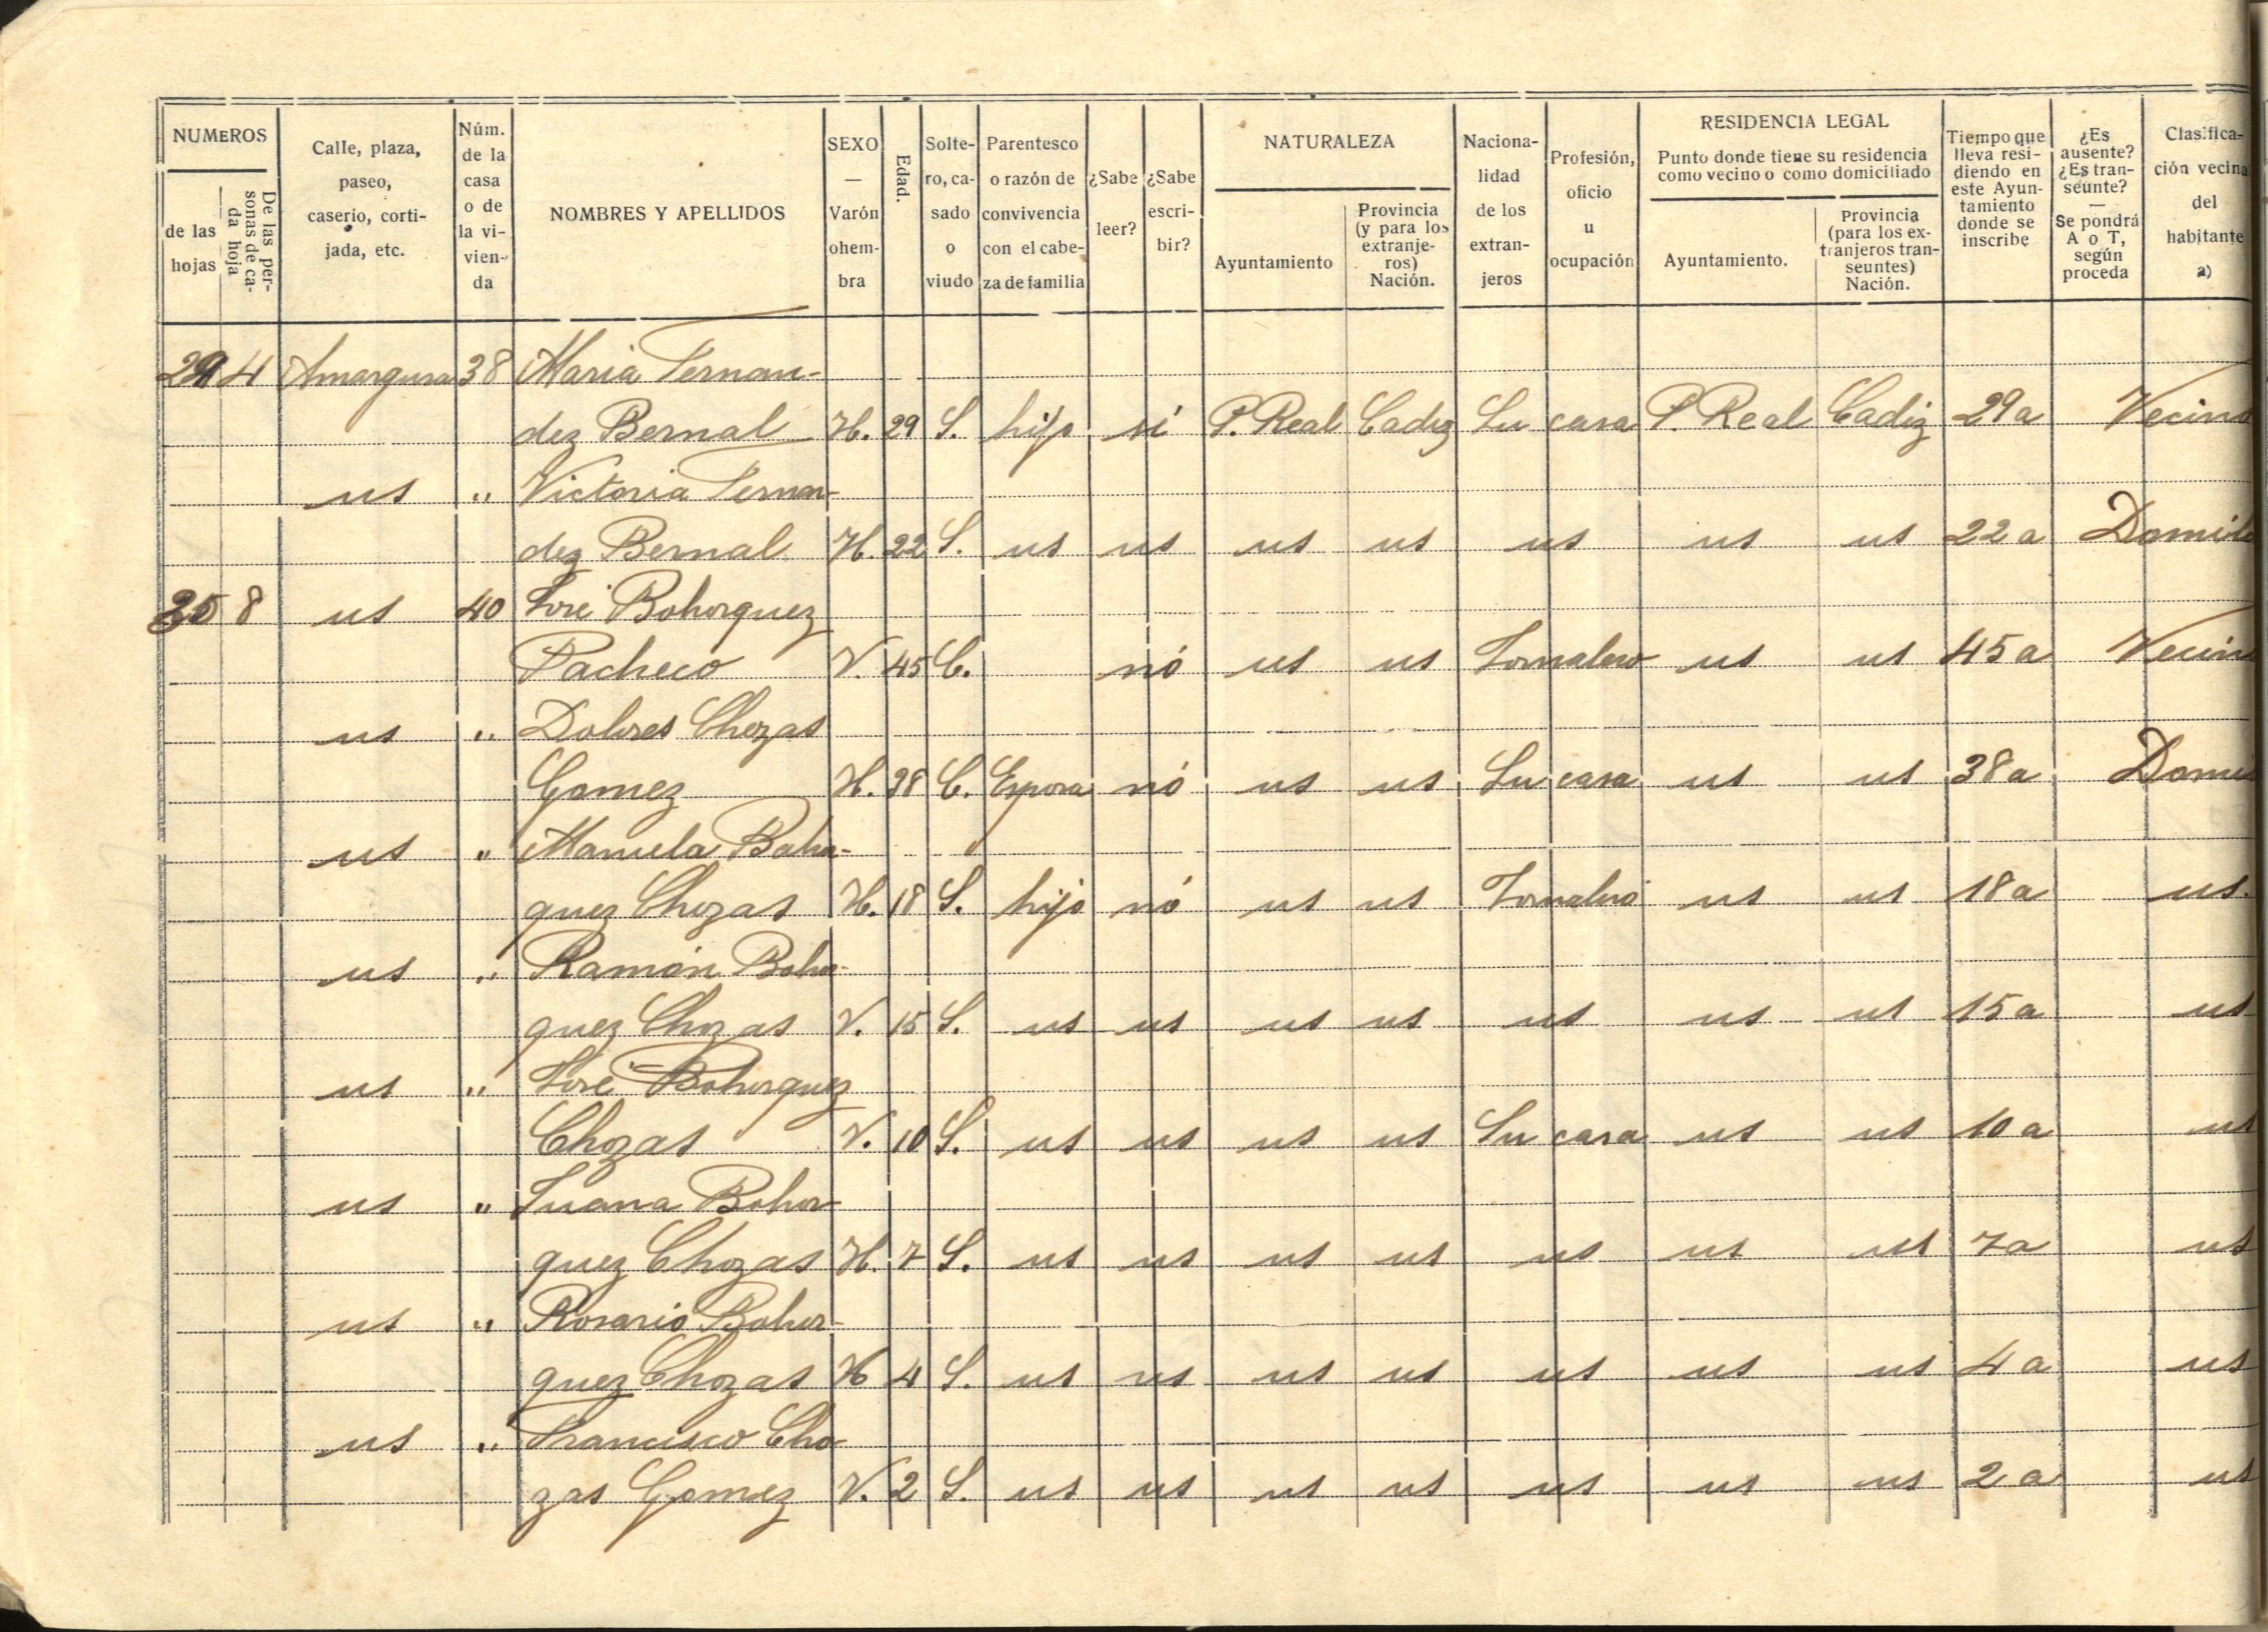 NUMEROS
de las hojas
De las personas de cada hoja
Calle, plaza, paseo, caserío, cortijada, etc.
Núm. de la casa o de la vivienda
NOMBRES Y APELLIDOS
SEXO — Varón o hembra
Edad.
Soltero, casado o viudo
Parentesco o razón de convivencia con el cabeza de familia
¿Sabe leer?
¿Sabe escribir?
NATURALEZA
Ayuntamiento
Provincia (y para los extranjeros) Nación.
Nacionalidad de los extranjeros
Profesión, oficio u ocupación
RESIDENCIA LEGAL
Punto donde tiene su residencia como vecino o como domiciliado
Ayuntamiento.
Provincia (para los extranjeros transeuntes) Nación.
Tiempo que lleva residiendo en este Ayuntamiento donde se inscribe
¿Es ausente? ¿Es transeunte? — Se pondrá A o T, según proceda
Clasificación vecina del habitante a)
29 4 Amargura 38 Maria Fernan-
dez Bernal H. 29 S. hija si P. Real Cadiz Su casa P. Real Cadiz 29 a Vecino
us " Victoria Fernan-
dez Bernal H. 22 S. us us us us us us us 22 a Domic
8 us 40 José Bohorquez
Pacheco V. 45 C. nó us us Jornalero us us 45 a Vecino
us " Dolores Chozas
Gomez H. 38 C. Esposa nó us us Su casa us us 38 a Domic
us " Manuela Boho-
quez Chozas H. 18 S. hijo nó us us Jornalero us us 18 a us.
us " Ramón Bohor-
quez Chozas V. 15 S. us us us us us us us 15 a us
us " José Bohorquez
Chozas V. 10 S. us us us us Su casa us us 10 a us
us " Juana Bohor-
quez Chozas H. 7 S. us us us us us us us 7 a us
us " Rosario Bohor-
quez Chozas H 4 S. us us us us us us us 4 a us
us " Francisco Cho-
zas Gomez V. 2 S. us us us us us us us 2 a us